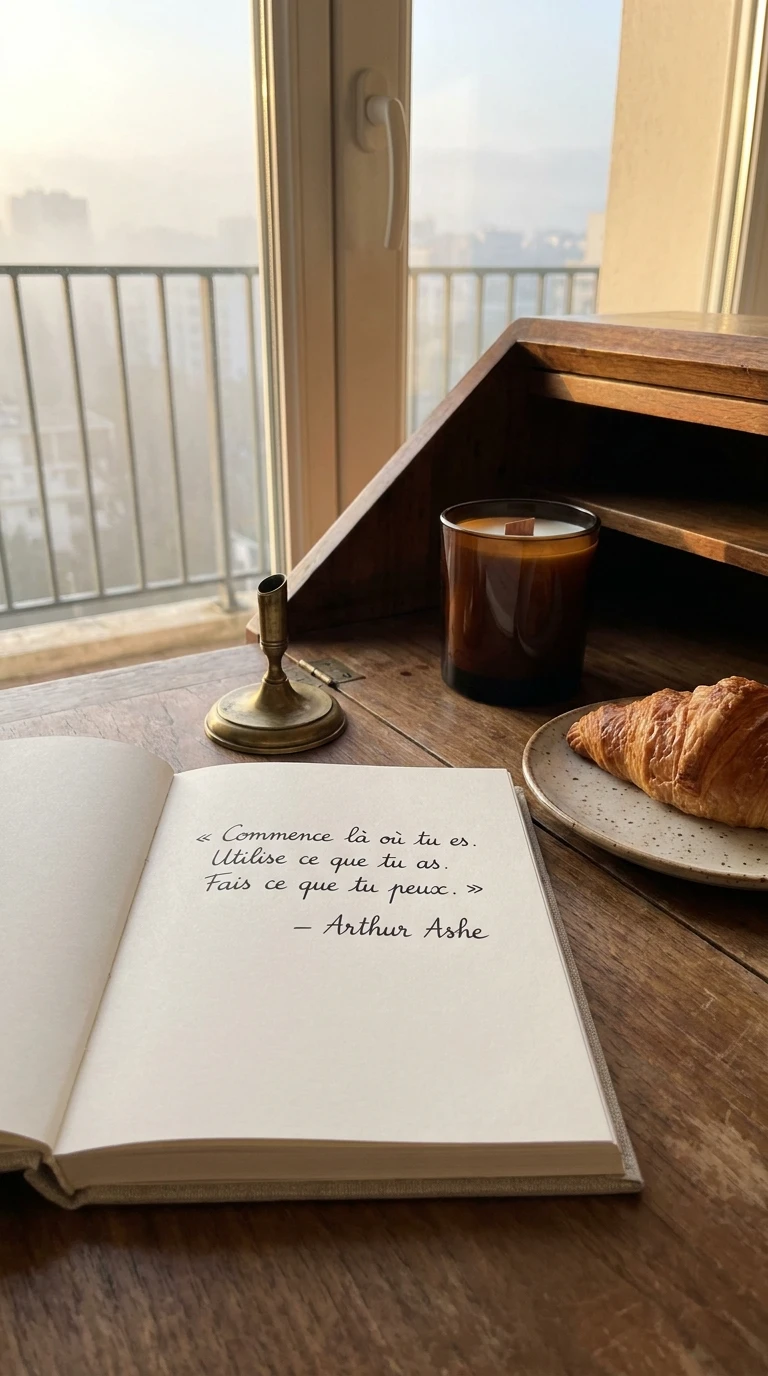 « Commence là où tu es.
Utilise ce que tu as.
Fais ce que tu peux. »
– Arthur Ashe